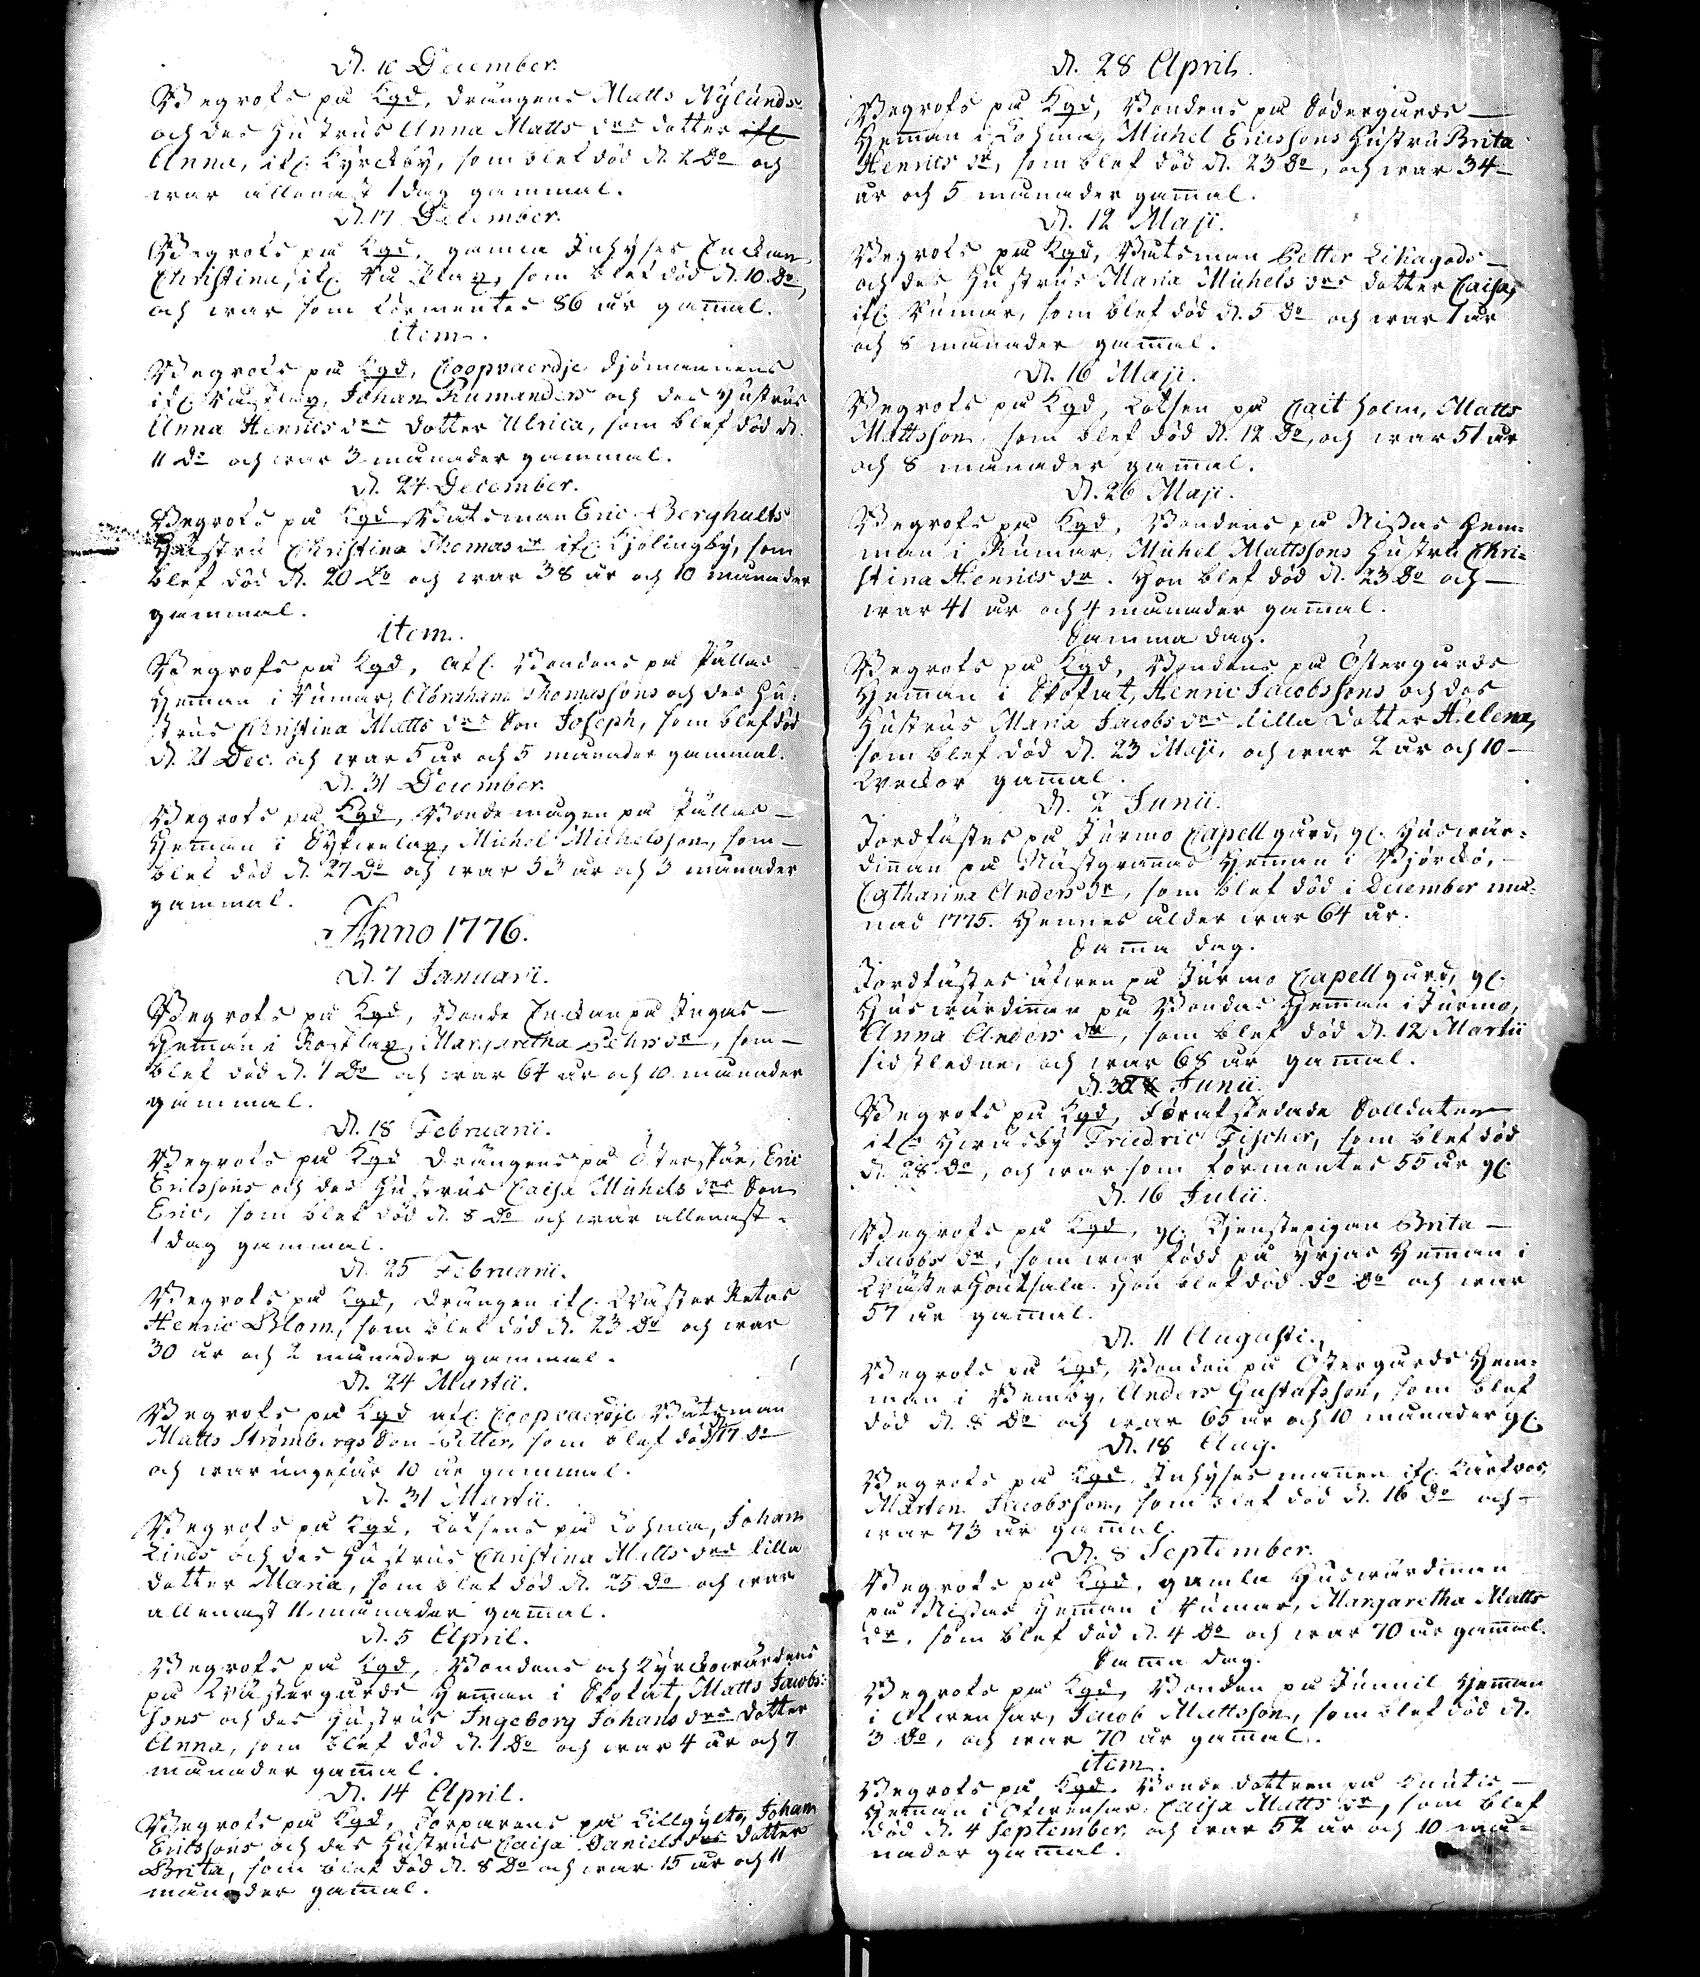 D. 10 December.
Begrofs på Kgd, drängens Matts Nylunds
och des Hustrus Anna Matts drs dotter
Anna, ifr. Kyrckby, som blef död d. 2 Do och
war allenast 1 dag gammal.
D. 17 December.
Begrofs på Kgd, gamla Inhyses Enckan
Christina, ifr. som blef död d. 10 Do,
och war som förmentes 86 år gamal.
item.
Begrofs på Kgd, Coopvaerdje Sjömannens
ifr. Johan Rumanders och des Hustrus
Anna Henrics drs dotter Ulrica, som blef död d.
11 Do och war 3 månader gammal.
D. 24 December.
Begrofs på Kgd Båtsman Eric Berghults
Hustru Christina Thomas dr ifr. Kjölingby, som
blef död d. 20 Do och war 38 år och 10 månader
gammal.
item.
Begrofs på Kgd, afl. Bondens på Pällas
Heman i Wumar, Abraham Thomassons och des Hu-
strus Christina Matts drs Son Joseph, som blef död
d. 21 Dec. och war 5 år och 5 månader gammal.
D. 31 December.
Begrofs på Kgd, Bondemågen på Pällas
Heman i Michel Michelsson, som
blef död d. 27 Do och war 53 år och 3 månader
gammal.
Anno 1776.
D. 7 Januarii.
Begrofs på Kgd, Bonde Enckan på Ingas
Heman i Margaretha Pehrs dr, som
blef död d. 1 Do och war 64 år och 10 månader
gammal.
D. 18 Februarii.
Begrofs på Kgd Drängens på Eric
Erikssons och des Hustrus Caisa Michels drs Son
Eric, som blef död d. 8 Do och war allenast
1 dag gammal.
D. 25 Februarii.
Begrofs på Kgd, Drängen ifr. Wäster Retais
Henric Blom, som blef död d. 23 Do och war
30 år och 2 månader gammal.
D. 24 Martii.
Begrofs på Kgd afl. Coopvaerdje Båtsman
Matts Strömbergs Son Petter, som blef död d. 17 Do
och war ungefär 10 år gammal.
D. 31 Martii.
Begrofs på Kgd, Lotsens på Lohma, Johan
Linds och des Hustrus Christina Matts drs lilla
dotter Maria, som blef död d. 25 Do och war
allenast 11 månader gamal.
D. 5 April.
Begrofs på Kgd, Bondens och Kyrckowärdens
på Wästergårds Heman i Skofat, Matts Jacobs-
sons och des Hustrus Ingeborg Johans drs dotter
Anna, som blef död d. 1 Do och war 4 år och 7
månader gamal.
D. 14 April.
Begrofs på Kgd, Torparens på Killgylte, Johan
Erikssons och des Hustrus Caisa Daniels drs dotter
Brita, som blef död d. 8 Do och war 15 år och 11
månader gamal.
D. 28 April.
Begrofs på Kgd, Bondens på Södergårds
Heman i Lohma, Michel Ericssons Hustru Brita
Henrics dr, som blef död d. 23 Do, och war 34
år och 5 månader gamal.
D. 12 Maji.
Begrofs på Kgd, Båtsman Petter Lihagads
och des Hustrus Maria Michels drs dotter Caisa,
ifr. Wumar, som blef död d. 5 Do och war 1 år
och 8 månader gamal.
D. 16 Maji.
Begrofs på Kgd, Lotsen på holm, Matts
Mattsson, som blef död d. 12 Do, och war 51 år
och 8 månader gamal.
D. 26 Maji.
Begrofs på Kgd, Bondens på Nissas Hem-
man i Rumar, Michel Mattssons Hustru Chri-
stina Henrics dr. Hon blef död d. 23 Do och
war 41 år och 4 månader gamal.
Samma dag.
Begrofs på Kgd, Bondens på Östergårds
Heman i Skofat, Henric Jacobssons och des
Hustrus Maria Jacobs drs lilla dotter Helena,
som blef död d. 23 Maji, och war 2 år och 10
Weckor gamal.
D. 2 Junii.
Jordfästes på Jurmo Capell gård, gl. Huswär-
dinnan på Nästgrannas Heman i Björckö,
Catharina Anders dr, som blef död i December må-
nad 1775. Hennes ålder war 64 år.
Sama dag.
Jordfästes äfwen på Jurmo Capell gård, gl.
Huswärdinnan på Bondas Heman i Jurmo,
Anna Anders dr, som blef död d. 12 Martii
sidstledne, och war 68 år gamal.
D. 30 Junii.
Begrofs på Kgd, förafskedade Solldaten
ifr. Hiruxby Friedric Fischer, som blef död
d. 28 Do, och war som förmentes 55 år gl.
D. 16 Julii.
Begrofs på Kgd, gl. Tjenstepigan Brita
Jacobs dr, som war född på Yrjas Heman i
Wäster Houtsala. Hon blef död do Do och war
57 år gamal.
D. 11 Augusti.
Begrofs på Kgd, Bonden på Östergårds Hem-
man i Wemby, Anders Gustafsson, som blef
död d. 8 Do och war 65 år och 10 månader gl.
D. 18 Aug.
Begrofs på Kgd Inhyses mannen ifr.
Mårten Jacobsson, som blef död d. 16 Do och
war 73 år gamal.
D. 8 September.
Begrofs på Kgd, gamla Huswärdinnan
på Nissas Heman i Wumar, Margaretha Matts
dr, som blef död d. 4 Do och war 70 år gamal.
Sama dag.
Begrofs på Kgd, Bonden på Heman
i Jacob Mattsson, som blef död d.
3 Do, och war 70 år gamal.
item.
Begrofs på Kgd. Bonde dottren på Knutis
Heman i Caisa Matts dr, som blef
död d. 4 September, och war 52 år och 10 må-
nader gamal.